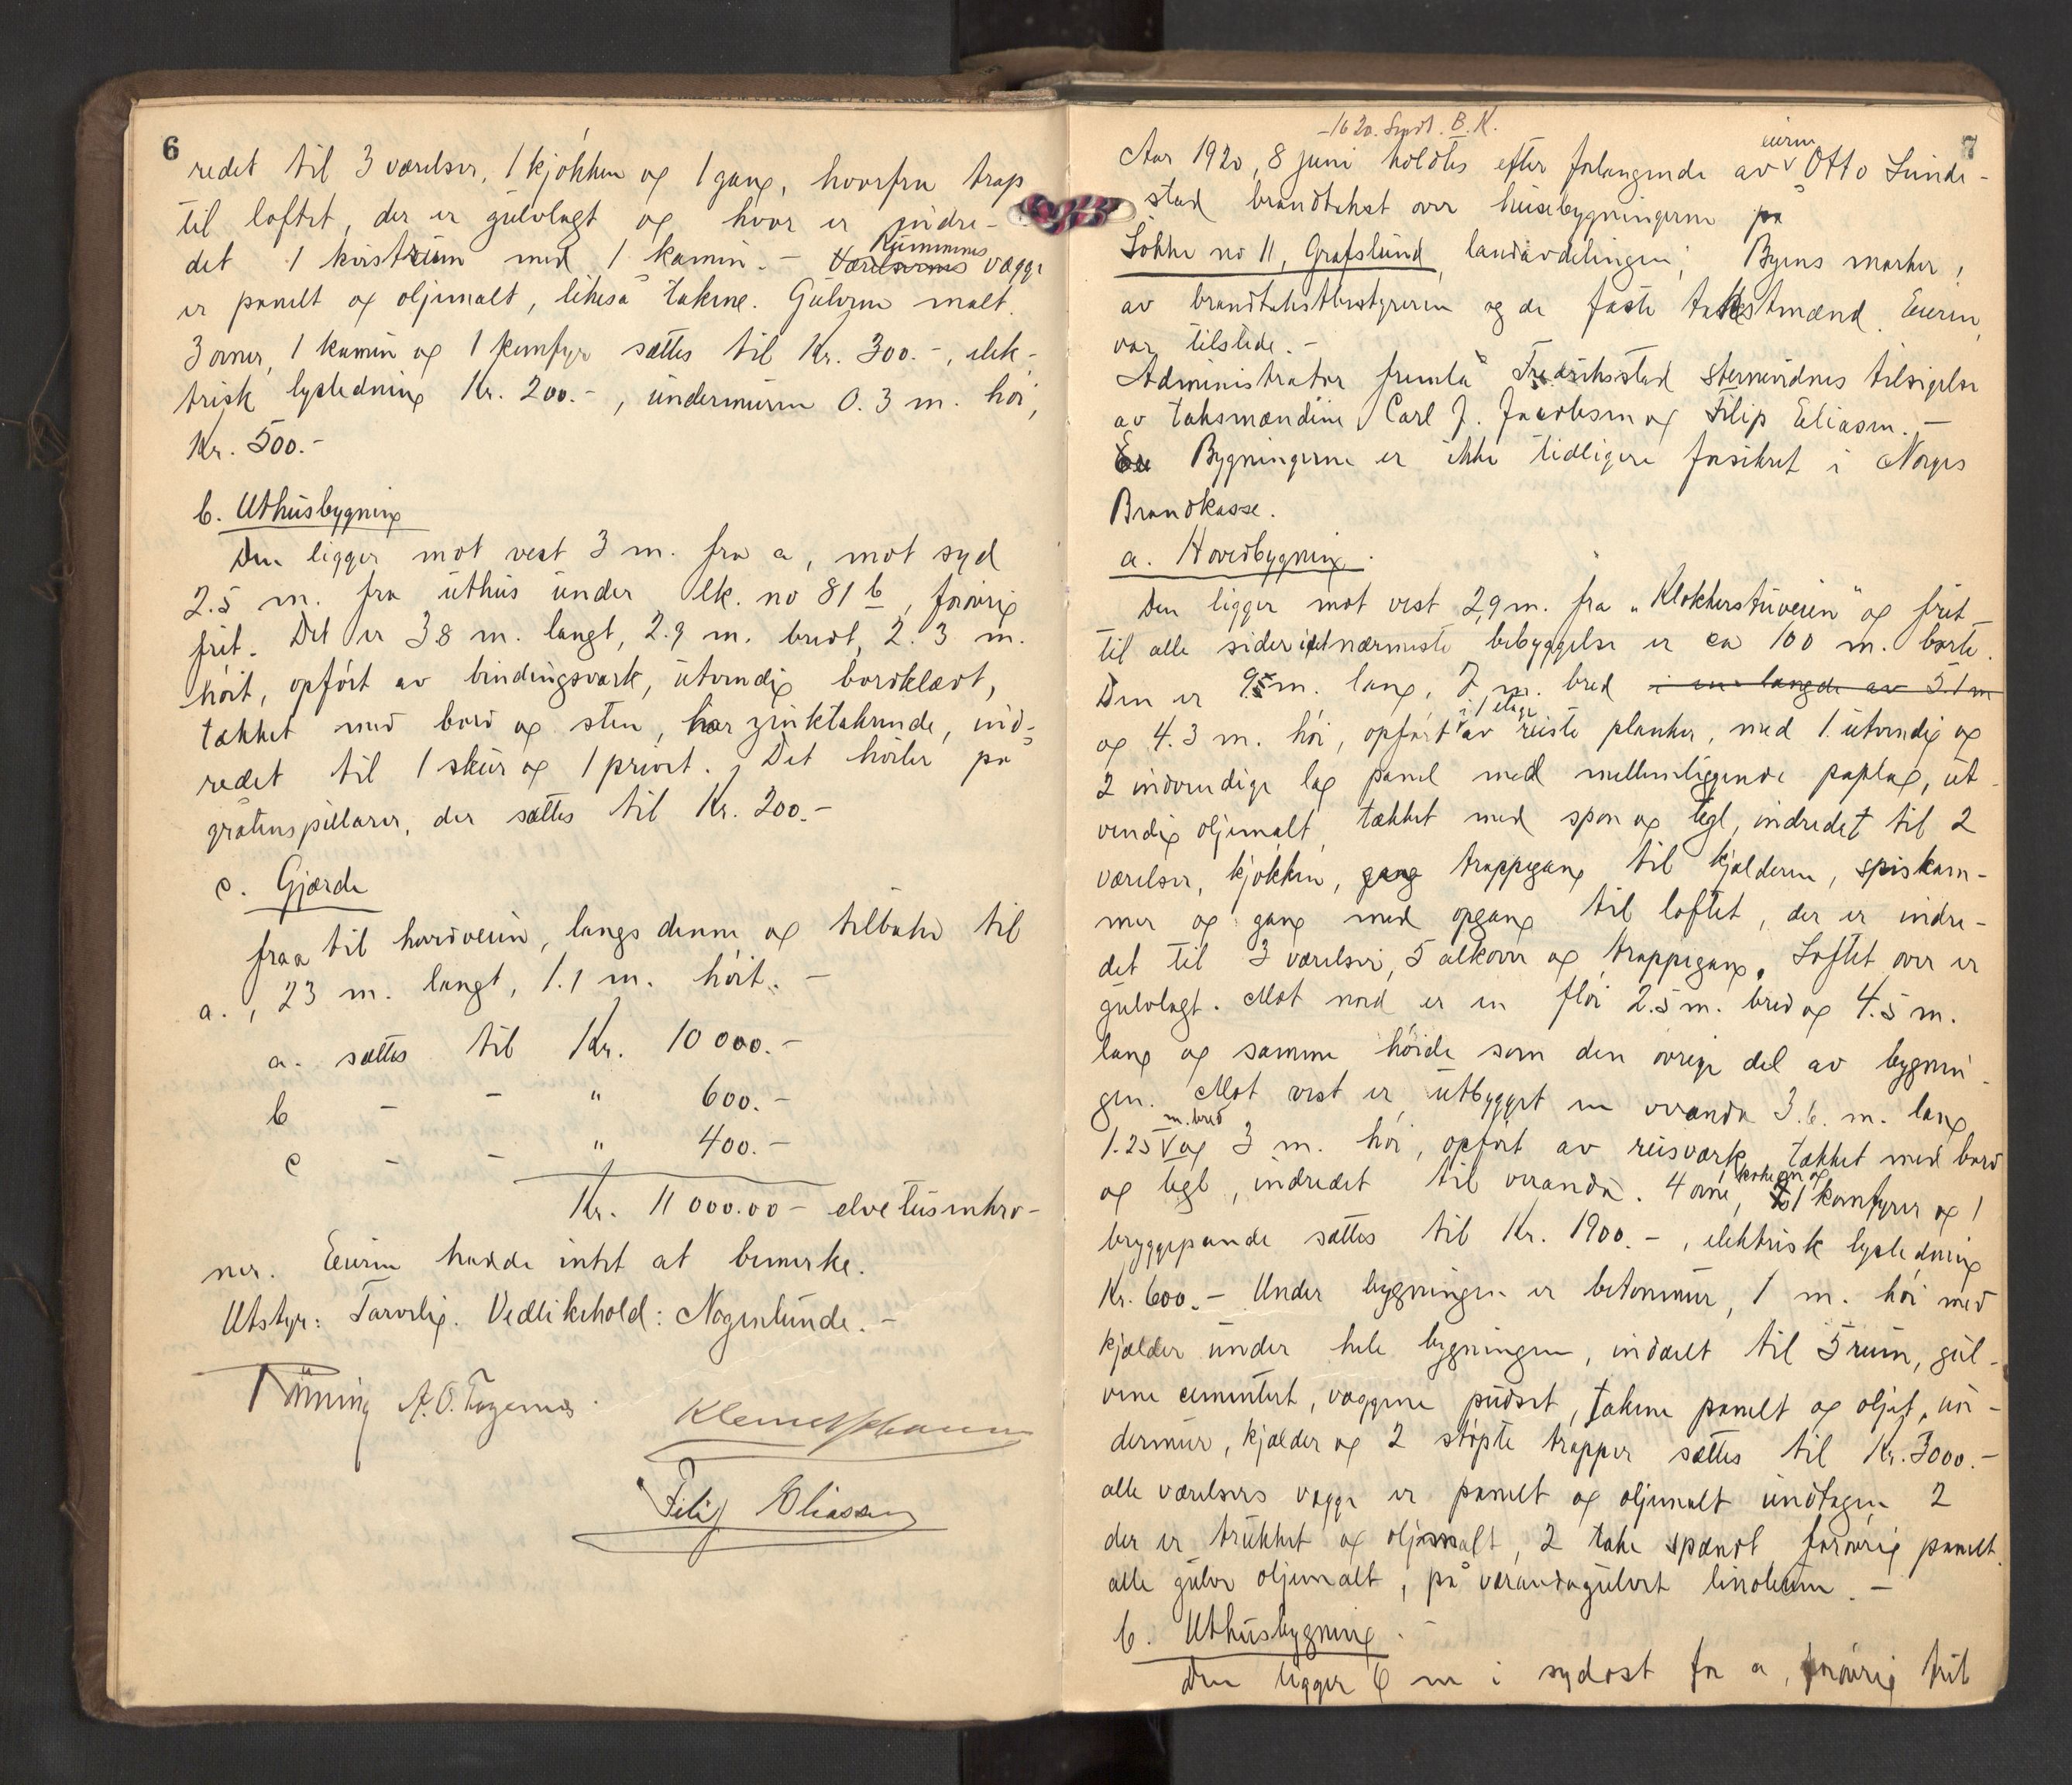 6
redet til 3 værelser, 1 kjøkken og 1 gang, hvorfra trap
til loftet, der er gulvlagt og hvor er indre-
det 1 kvistrum med 1 kamin. - Værelsernes Rummenes vægge
er panelt og oljemalt, likeså takene. Gulvene malt.
3 ovner, 1 kamin og 1 komfyr sættes til Kr. 300.-, elek-
trisk lysledning Kr. 200.-, undermuren 0.3 m. høi,
Kr. 500.-
b. Uthusbygning
Den ligger mot vest 3 m. fra a, mot syd
2.5 m. fra uthus under lk. no 81 b, forøvrig
frit. Det er 3.8 m. langt, 2.9 m. bredt, 2.3 m.
høit, opført av bindingsverk, utvendig bordklædt,
tækket med bord og sten, har zinktakrende, ind-
redet til 1 skur og 1 privet. Det hviler på
gråtenspillarer, der sættes til Kr. 200.-
c. Gjærde
fra a til hovedveien, langs denne og tilbake til
a., 23 m. langt, 1.1 m. høit. -
a. sættes til Kr. 10 000.-
b - - " 600.-
c - - " 400.-
Kr. 11 000.00 - elve tusinkro-
ner. Eieren hadde intet at bemerke.
Utstyr: Tarvelig. Vedlikehold: Nogenlunde. -
Filip Eliassen
7
Aar 1920, 8 juni holdtes efter forlangende av eieren Otto Lunde-
stad brandtakst over husebygningerne på
Løkke no 11, Grafslund, landavdelingen, Byens marker,
av brandtakstbestyreren og de faste takstmænd. Eieren
var tilstede. -
Administrator fremla Fredrikstad stevnevidnes tilsigelse
av taksmændene Carl J. Jacobsen og Filip Eliasen. -
Bygningerne er ikke tidligere forsikret i Norges
Brandkasse.
a. Hovedbygning.
Den ligger mot vest 2,9 m. fra "Klokkerstuveien" og frit
til alle sider idet nærmeste bebyggelse er ca 100 m. borte.
Den er 9.5 m. lang, 7 m. bred i en længde av 5.1 m
og 4.3 m. høi, opført i 1 etage av reiste planker, med 1 utvendig og
2 indvendige lag panel med mellemliggende paplag, ut-
vendig oljemalt, tækket med spon og tegl, indredet til 2
værelser, kjøkken, gang trappegang til kjælderen, spiskam-
mer og gang med opgang til loftet, der er indre-
det til 3 værelser, 5 alkover og trappegang. Loftet over er
gulvlagt. Mot nord er en fløi 2.5 m. bred og 4.5 m.
lang og samme høide som den øvrige del av bygnin-
gen. Mot vest er utbygget en veranda 3.6. m. lang
1.25 m. bred og 3 m. høi, opført av reisverk, tækket med bord
og tegl, indredet til veranda. 4 ovne, kokeovn og 1 komfyrer og 1
bryggepande sættes til Kr. 1900.-, elektrisk lysledning
Kr. 600.- Under bygningen er betonmur, 1 m. høi med
kjælder under hele bygningen, inddelt til 5 rum, gul-
vene cementert, væggene pudset, takene panelt og oljet, un-
dermur, kjælder og 2 støpte trapper sættes til Kr. 3000.-
alle værelsers vægge er panelt og oljemalt undtagen 2
der er trukket og oljemalt, 2 take spændt forøvrig panelt.
alle gulve oljemalt, på verandagulvet linoleum. -
b. Uthusbygning. -
Den ligger 6 m i sydøst for a, forøvrig frit